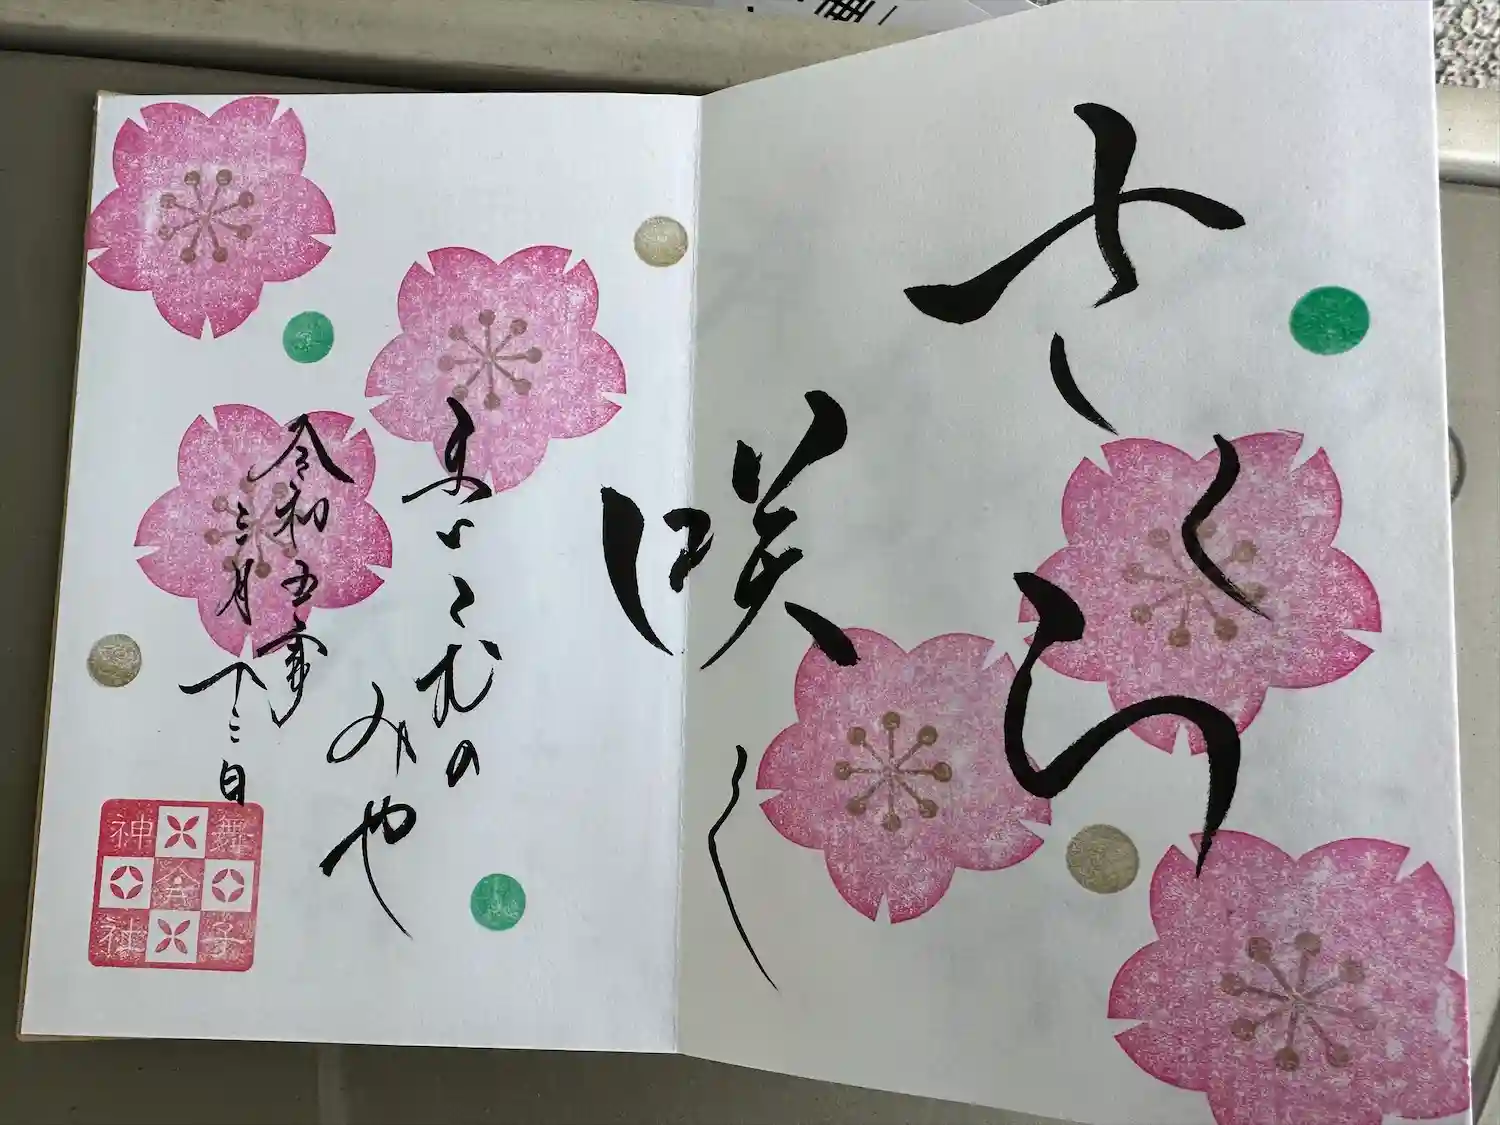 さくら
咲く
まいこむの
みや
令和五年
三月十二日
舞子
六
神社